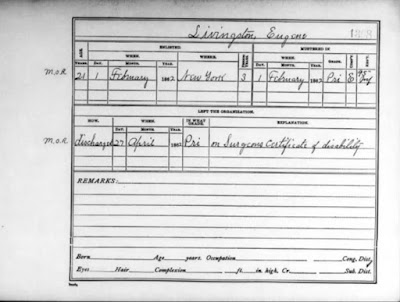 Livingston, Eugene
AGE. ENLISTED. MUSTERED IN
WHEN. WHERE. WHEN. GRADE. COMP'Y REG'T.
YEARS. DAY. MONTH. YEAR. YEARS. DAY. MONTH. YEAR.
M.O.R. 21 1 February 1862 New York 3 1 February 1862 Pri
LEFT THE ORGANIZATION.
HOW. WHEN. IN WHAT GRADE. EXPLANATION.
DAY. MONTH. YEAR.
M.O.R. discharged 27 April 1862 Pri on Surgeons Certificate of disability
REMARKS:
Born Age years. Occupation Cong. Dist.
Eyes Hair Complexion ft. in high. Cr. Sub. Dist.